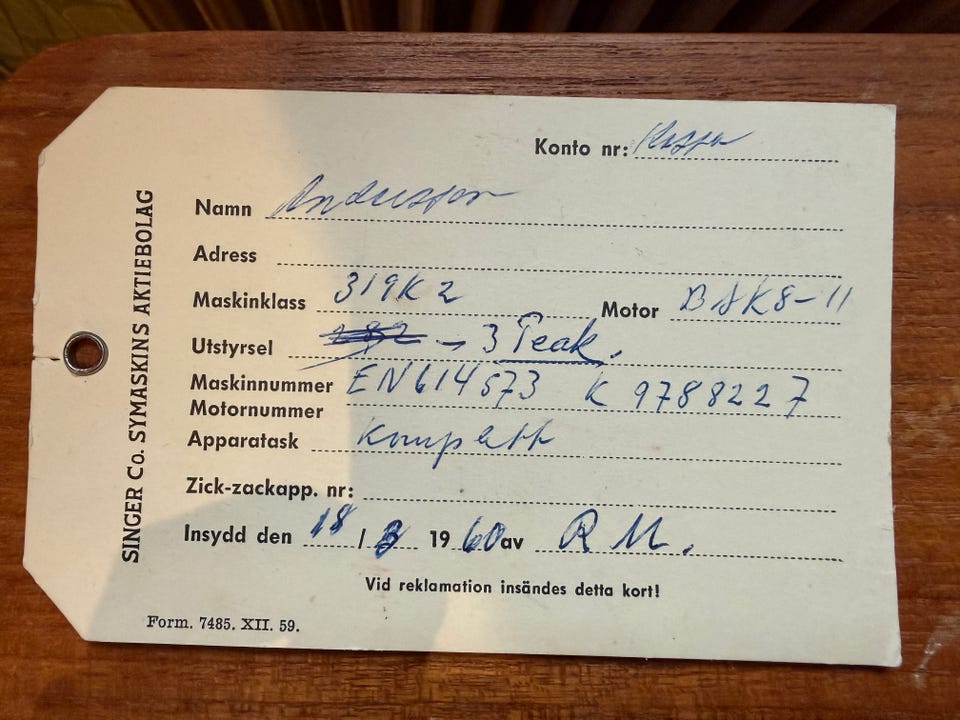 SINGER Co. SYMASKINS AKTIEBOLAG
Konto nr: Kassa
Namn Andersson
Adress
Maskinklass 319K2 Motor BAK8-11
Utstyrsel 3 Teak.
Maskinnummer EN614573 K 9788227
Motornummer
Apparatask komplett
Zick-zackapp. nr:
Insydd den 18/3 1960 av R M.
Vid reklamation insändes detta kort!
Form. 7485. XII. 59.